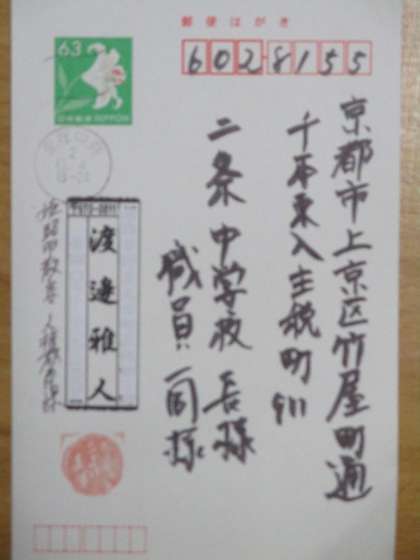 郵便はがき
602-8155
京都市上京区竹屋町通
千本東入主税町911
二条中学校長様
職員一同様
63
日本郵便 NIPPON
渡邉雅人